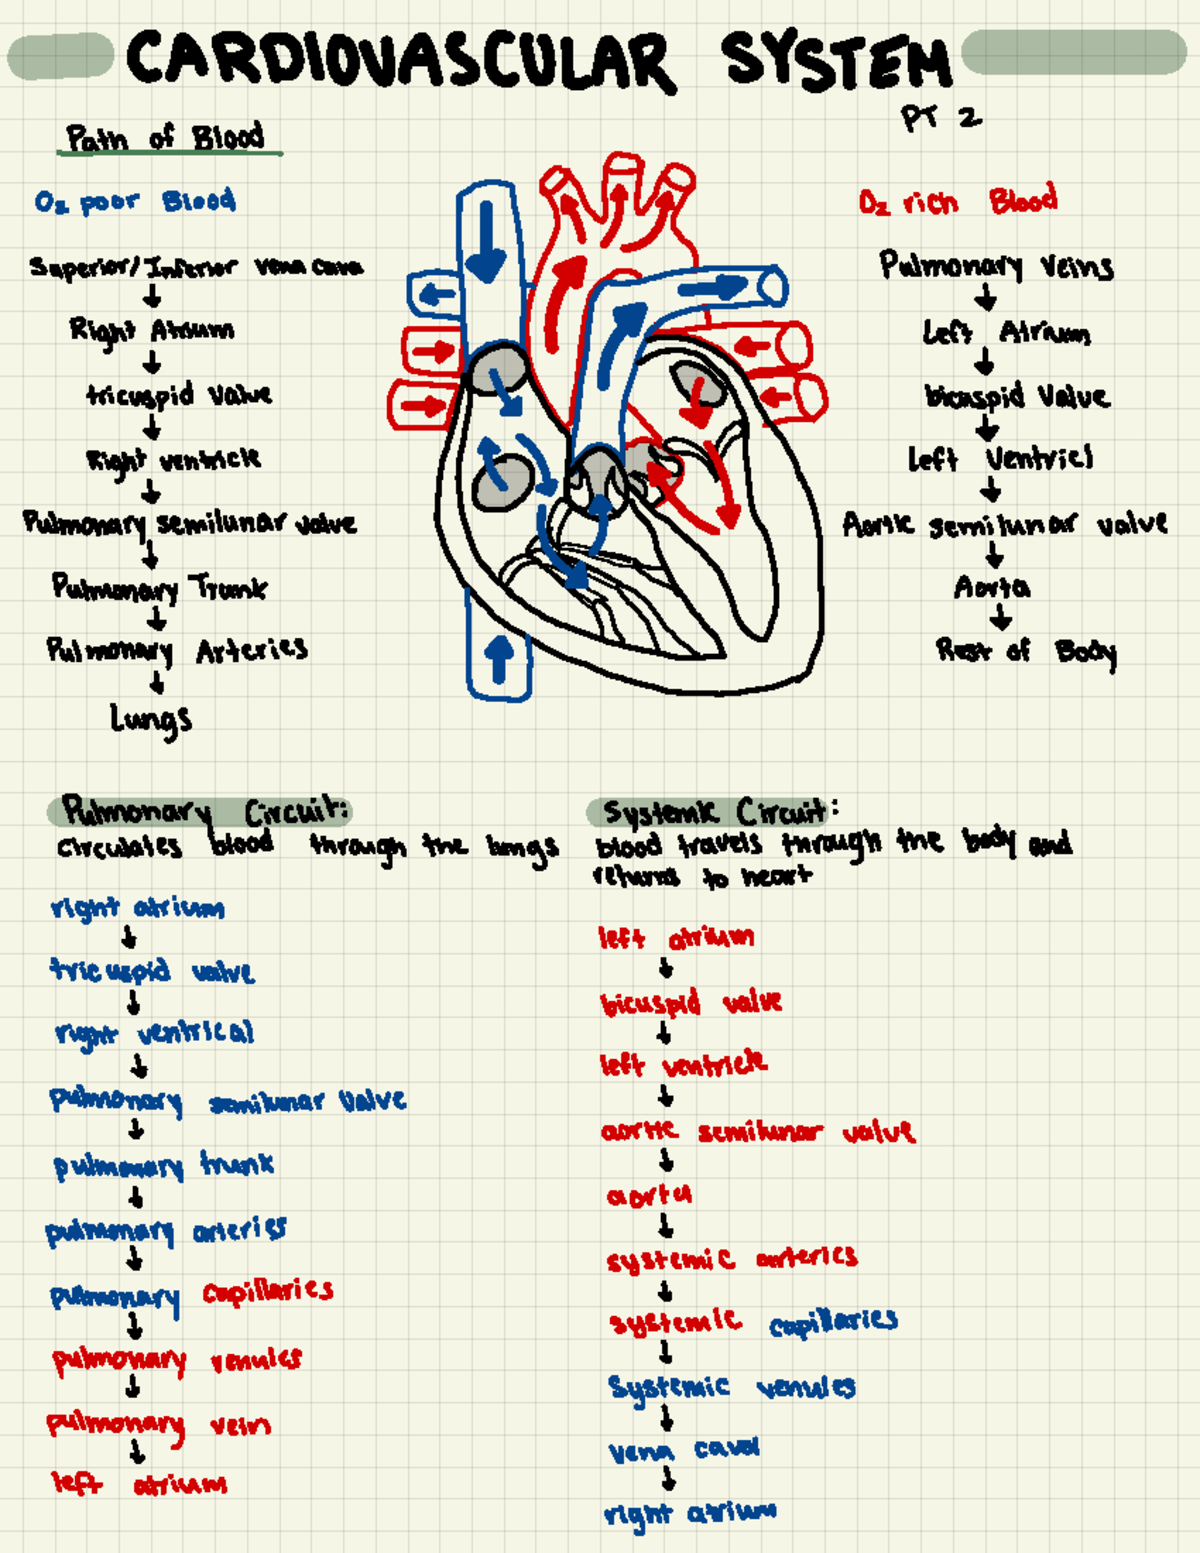 CARDIOVASCULAR SYSTEM
PT 2
Path of Blood
O₂ poor Blood
Superior/Inferior vena cava
↓
Right Atrium
↓
tricuspid Valve
↓
Right ventricle
↓
Pulmonary semilunar valve
↓
Pulmonary Trunk
↓
Pulmonary Arteries
↓
Lungs
O₂ rich Blood
Pulmonary Veins
↓
Left Atrium
↓
bicuspid Valve
↓
Left Ventricl
↓
Aortic semilunar valve
↓
Aorta
↓
Rest of Body
Pulmonary Circuit:
circulates blood through the lungs
right atrium
↓
tricuspid valve
↓
right ventrical
↓
pulmonary semilunar valve
↓
pulmonary trunk
↓
pulmonary arteries
↓
pulmonary capillaries
↓
pulmonary venules
↓
pulmonary vein
↓
left atrium
Systemic Circuit:
blood travels through the body and
returns to heart
left atrium
↓
bicuspid valve
↓
left ventricle
↓
aortic semilunar valve
↓
aorta
↓
systemic arteries
↓
systemic capillaries
↓
systemic venules
↓
vena caval
↓
right atrium